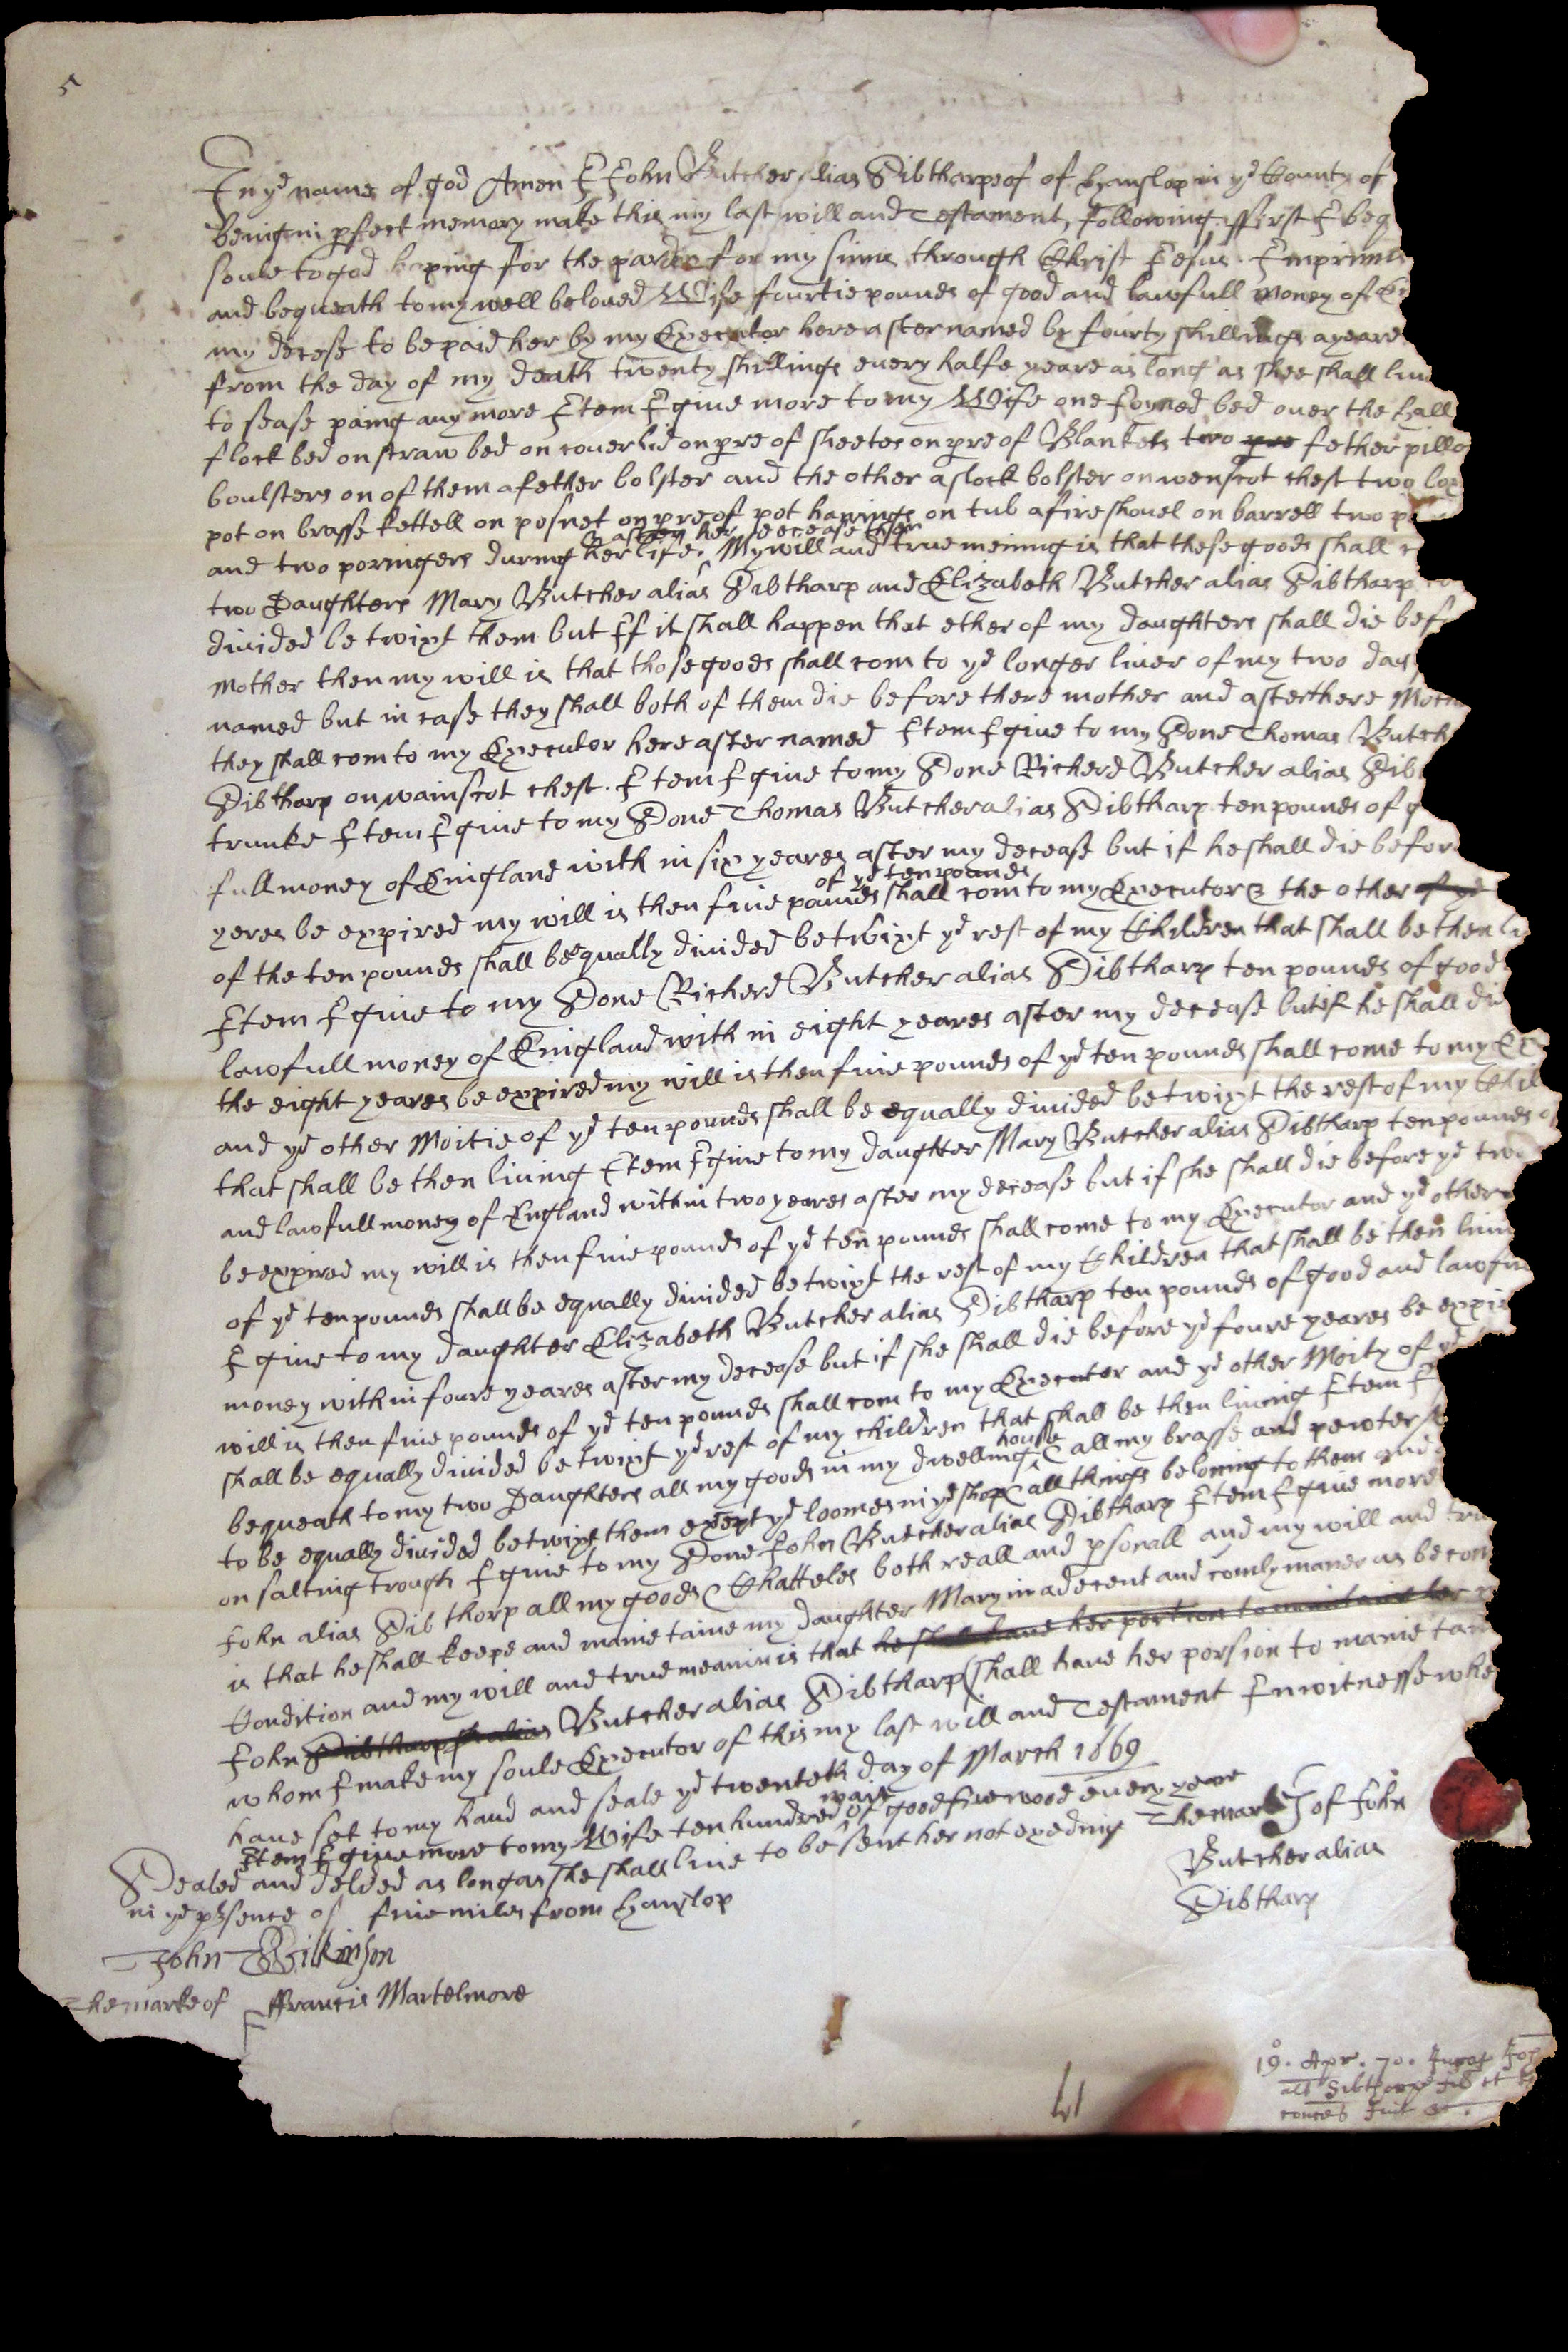 5
In ye name of god Amen I John Butcher alias Sibtharpe of of Hanslop in ye County of
being in pfect memory make this my last will and Testament, following ffirst I beq
soule to god hoping for the pardon for my sinns through Christ Jesus. Imprimis
and bequeath to my well beloved Wife fourtie pounds of good and lawfull money of
my decese to be paid her by my Executor here after named by fourty shillings a yeare
from the day of my death twenty shillings every halfe yeare as long as shee shall live
to sease paing any more Item I give more to my Wife one Joyned bed over the hall
flock bed on straw bed on coverlid on pre of sheetes on pre of Blankets two pre fether pillo
boulsters on of them a fether bolster and the other a flock bolster on wenscot chest two
pot on brasse kettell on posnet on pre of pot hanings on tub a fire shovel on barrell two
after her decease then
and two poringers during her life, My will and true mening is that these goods shall
two Daughters Mary Butcher alias Sibtharp and Elizabeth Butcher alias Sibtharp
divided betwixt them but If it shall happen that ether of my daughters shall die bef
mother then my will is that those goods shall com to ye longer liver of my two dau
named but in case they shall both of them die before there mother and after there Moth
they shall com to my Executor here after named Item I give to my Sone Thomas Butch
Sibtharp on wainscot chest. Item I give to my Sone Richerd Butcher alias Sib
trunke Item I give to my Sone Thomas Butcher alias Sibtharp ten pounds of g
full money of England with in six yeares after my decease but if he shall die before
of ye ten pounds
yeres be expired my will is then five pounds shall com to my Executor & the other of ye
of the ten pounds shall be equally divided betwixt ye rest of my Children that shall be then li
Item I give to my Sone Richerd Butcher alias Sibtharp ten pounds of good
lawfull money of England with in eight yeares after my decease but if he shall di
the eight yeares be expired my will is then five pounds of ye ten pounds shall come to my Ex
and ye other Moitie of ye ten pounds shall be equally divided betwixt the rest of my Chil
that shall be then living Item I give to my daughter Mary Butcher alias Sibtharp ten pounds of
and lawfull money of England within two yeares after my decease but if she shall die before ye two
be expired my will is then five pounds of ye ten pounds shall come to my Executor and ye other
of ye ten pounds shall be equally divided betwixt the rest of my Children that shall be then livin
I give to my daughter Elizabeth Butcher alias Sibtharp ten pounds of good and lawfu
money with in foure yeares after my decease but if she shall die before ye foure yeares be expir
will is then five pounds of ye ten pounds shall com to my Executor and ye other Moity of ye
shall be equally divided betwixt ye rest of my children that shall be then living Item I
house
bequeath to my two Daughters all my goods in my dwelling & all my brasse and pewter
to be equally divided betwixt them exept ye loomes in ye shop & all things beloning to them and
on salting trough I give to my Sone John Butcher alias Sibtharp Item I give more
John alias Sibthorp all my goods & Chatteles both reall and psonall and my will and tru
is that he shall keepe and mainetaine my daughter Mary in a decent and comly maner as becom
Condition and my will and true meanin is that he shall have her portion to maintaine her
John Sibtharp alias Butcher alias Sibtharp shall have her porsion to mainetain
whom I make my soule Executor of this my last will and Testament In witnesse whe
have set to my hand and seale ye twenteth day of March 1669
waite
Item I give more to my Wife ten hundred of good fire wood every yeare
Sealed and delivred as long as she shall live to be sent her not exeding
in ye psence of five miles from Hanslop
The marke of John
Butcher alias
Sibtharp
John Wilkinson
The marke of ffrancis Martelmore
19. Apr. 70.